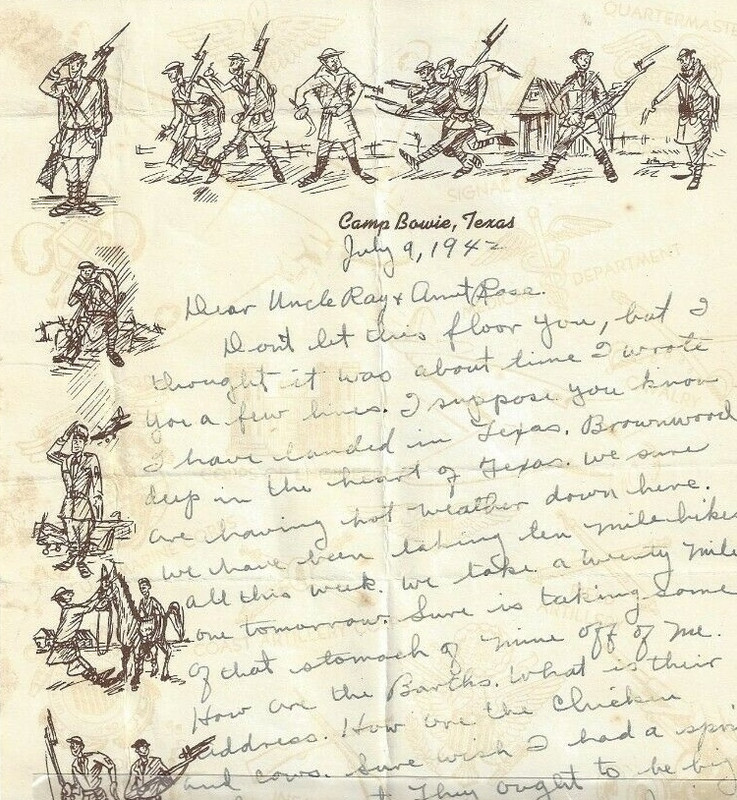 QUARTERMASTER
SIGNAL
DEPARTMENT
Camp Bowie, Texas
July 9, 1942
Dear Uncle Ray & Aunt Rose.
Don't let this floor you, but I
thought it was about time I wrote
you a few lines. I suppose you know
I have landed in Texas. Brownwood
deep in the heart of Texas. We sure
are having hot weather down here.
We have been taking ten mile hikes
all this week. We take a twenty mile
one tomorrow. Sure is taking some
of that stomach of mine off of me.
How are the Barths. What is their
address. How are the chicken
and cows. Sure wish I had a
They ought to be big